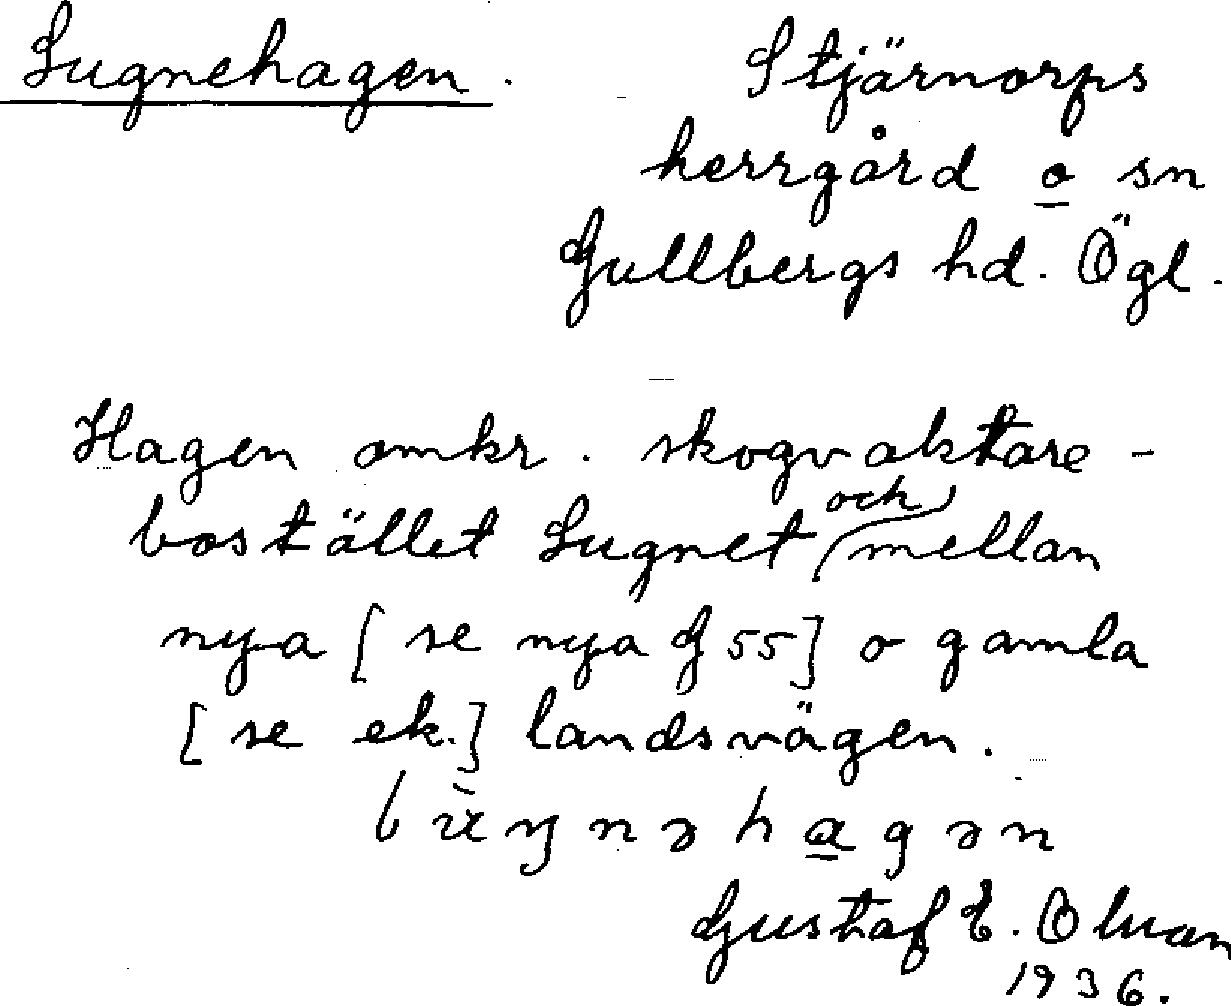 Lugnehagen.
Stjärnorps
herrgård o sn
Gullbergs hd. Ögl.
Hagen omkr. skogvaktare-
bostället Lugnet och mellan
nya [se nya G 55] o gamla
[se ek.] landsvägen.
Gustaf E. Olman
1936.